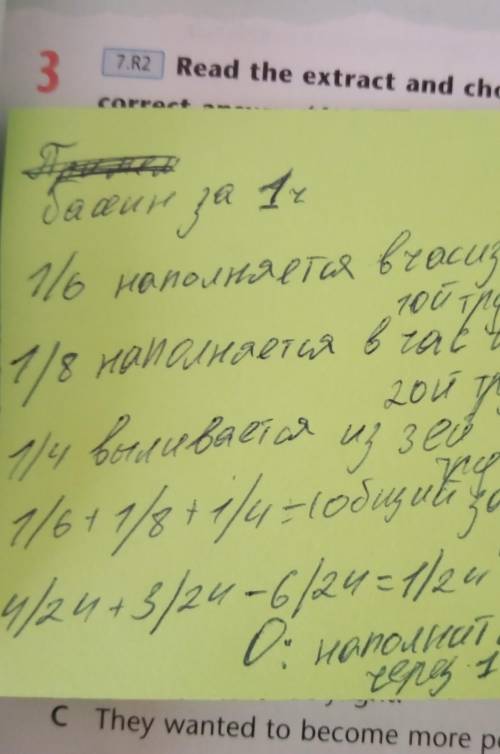 3 7.R2 Read the extract and
correct
басеин за 1ч
1/6 наполняется в час из
1ой
1/8 наполняется в час
2ой
1/4 выливается из 3ей
1/6 + 1/8 + 1/4 = (общий
4/24 + 3/24 - 6/24 = 1/24
О: наполнит
через 1
C They wanted to become more